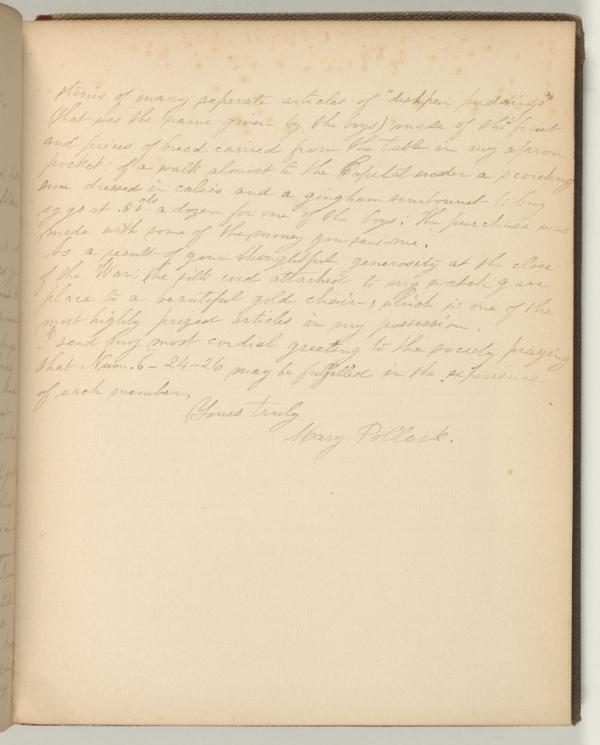 stories of many seperate articles of "dishpan puddings"
(that was the name given by the boys) made of the fruit
and prices of bread carried from the table in my apron
pocket; of a walk almost to the Capital under a scorching
sun dressed in calico and a gingham sunbonnet to buy
eggs at .50 cts a dozen for one of the boys: the purchase was
made with some of the money you sent me.
As a result of your thoughtful generosity at the close
of the War; the silk cord attached to my watch gave
place to a beautiful gold chain, which is one of the
most highly prized articles in my possession.
I send my most cordial greeting to the society praying
that Num. 6-24-26 may be fulfilled in the experience
of each member,
Yours truly
Mary Pollock.